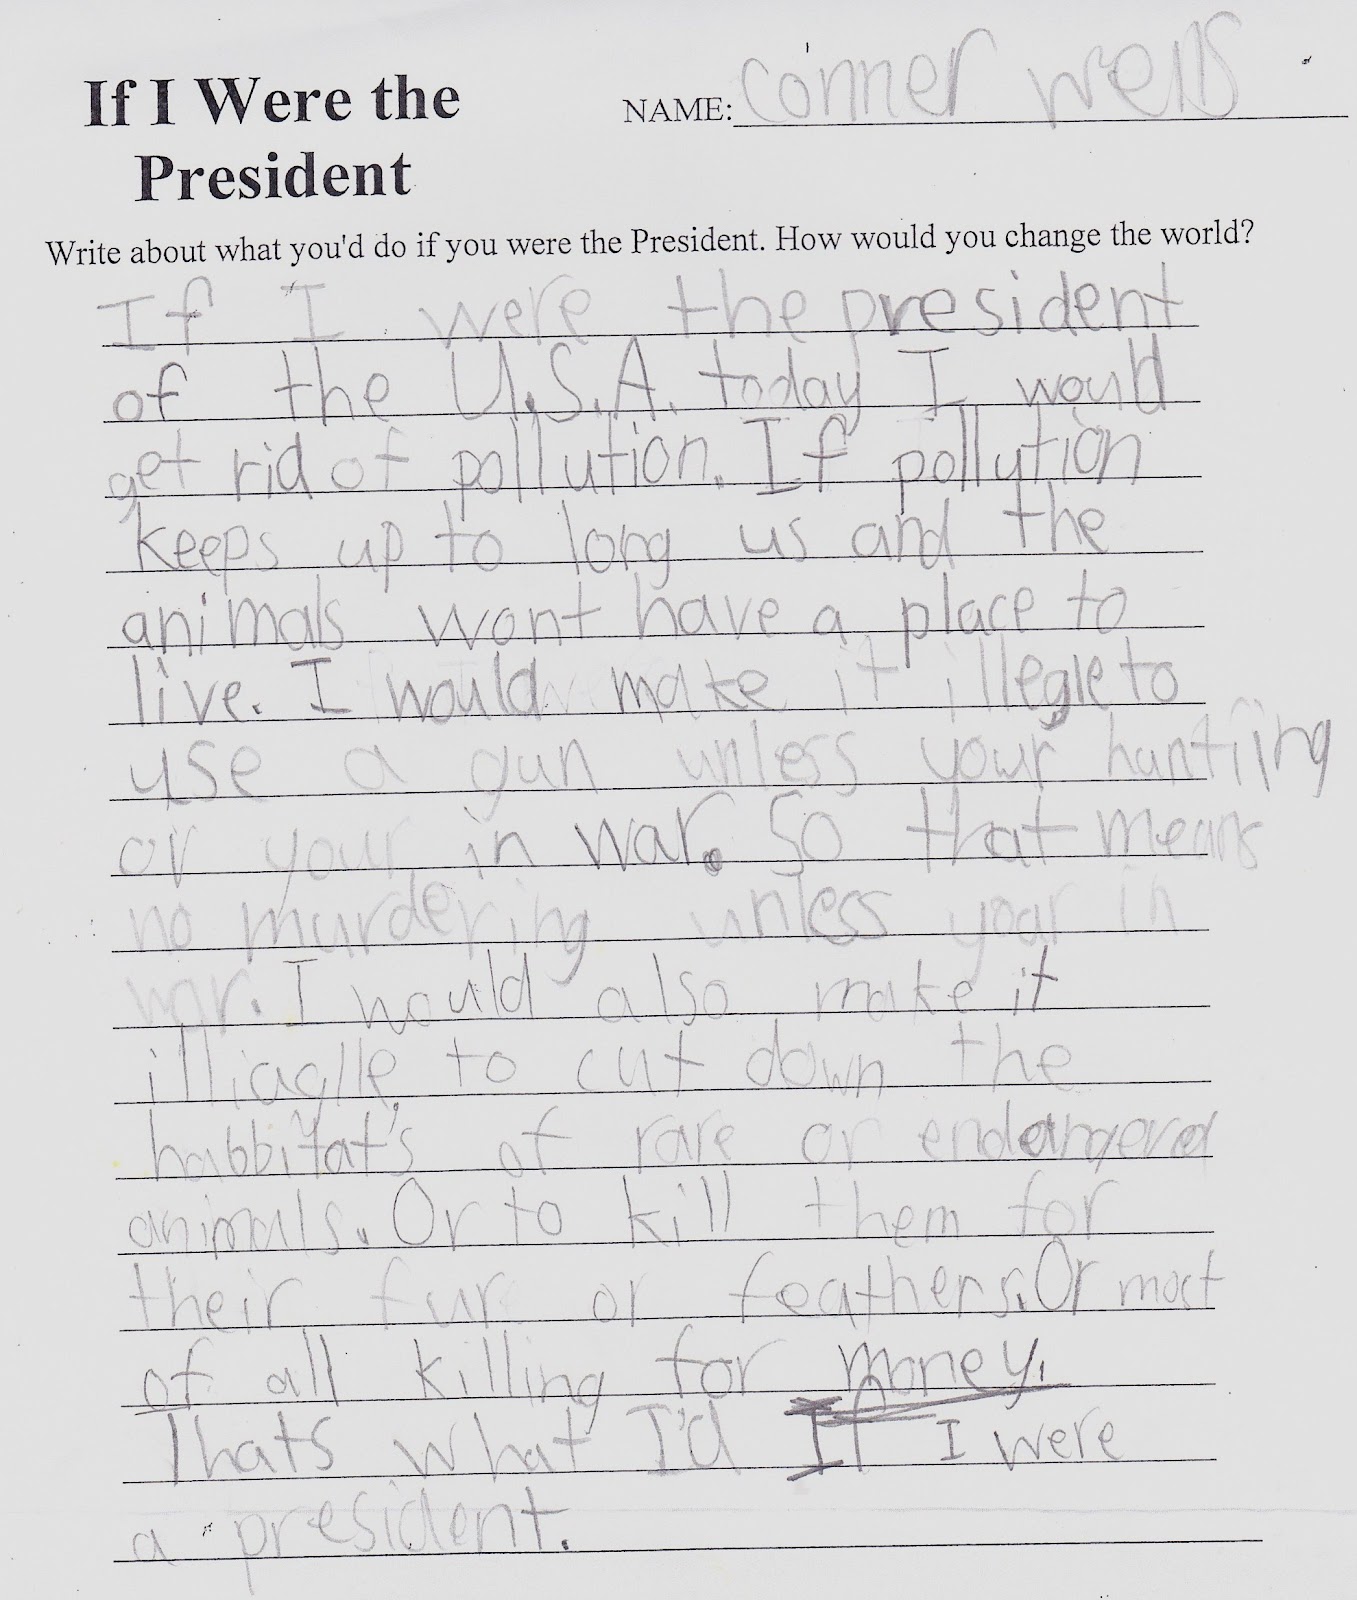 If I Were the
President
NAME: Conner Wells
Write about what you'd do if you were the President. How would you change the world?
If I were the president
of the U.S.A. today I would
get rid of pollution. If pollution
keeps up to long us and the
animals wont have a place to
live. I would make it illegle to
use a gun unless your huntiing
or your in war. So that means
no murdering unless your in
war. I would also make it
illiaglle to cut down the
habbitat's of rare or endangered
animals. Or to kill them for
their fur or feathers. Or most
of all killing for money.
Thats what I'd If I were
a president.